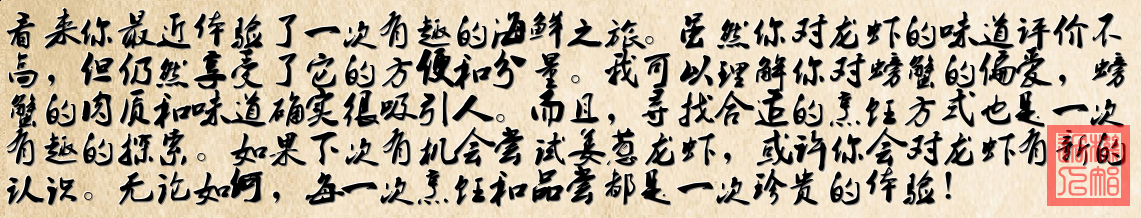 看来你最近体验了一次有趣的海鲜之旅。虽然你对龙虾的味道评价不
高，但仍然享受了它的方便和分量。我可以理解你对螃蟹的偏爱，螃
蟹的肉质和味道确实很吸引人。而且，寻找合适的烹饪方式也是一次
有趣的探索。如果下次有机会尝试姜葱龙虾，或许你会对龙虾有新的
认识。无论如何，每一次烹饪和品尝都是一次珍贵的体验！